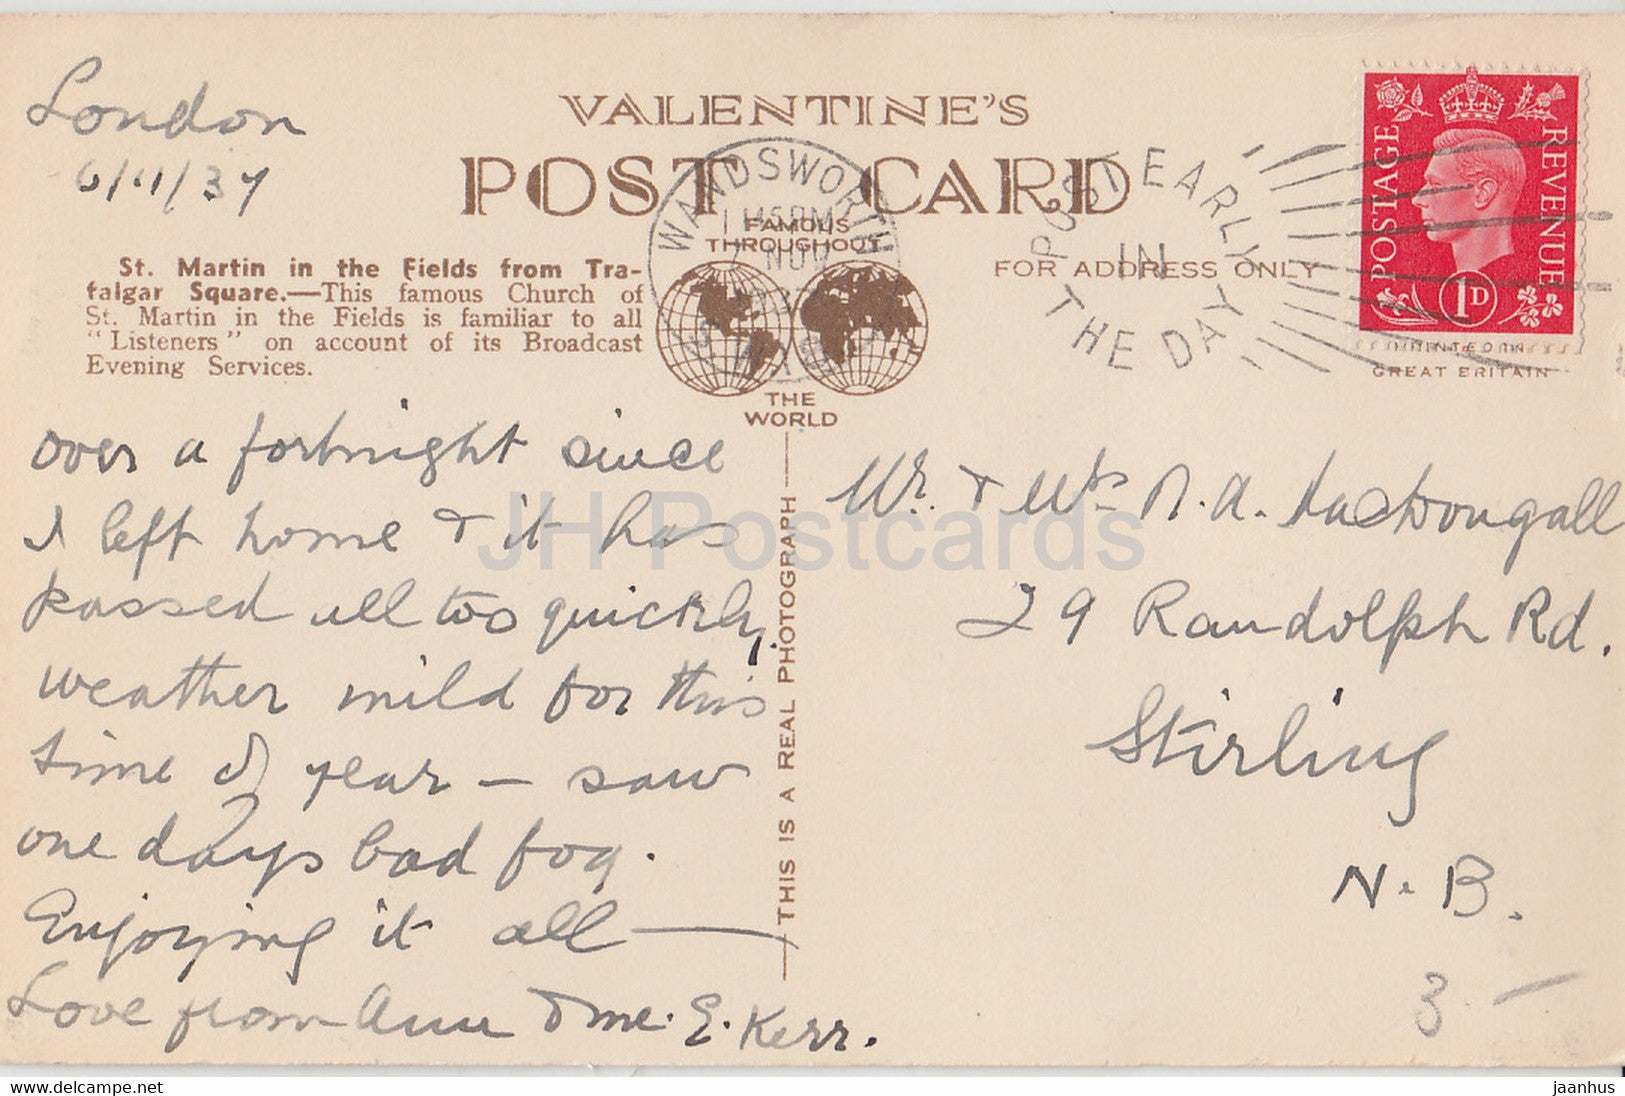 London
6/11/37
VALENTINE'S
POST CARD
FAMOUS
THROUGHOUT
THE
WORLD
FOR ADDRESS ONLY
WANDSWORTH
NOV
POST EARLY
IN
THE DAY
POSTAGE
REVENUE
1D
PRINTED IN
GREAT BRITAIN
St. Martin in the Fields from Tra-
falgar Square.—This famous Church of
St. Martin in the Fields is familiar to all
"Listeners" on account of its Broadcast
Evening Services.
over a fortnight since
I left home & it has
passed all too quickly.
weather mild for this
time of year – saw
one days bad fog.
Enjoying it all —
Love from Ann & me. E. Kerr.
THIS IS A REAL PHOTOGRAPH
Mr. & Mrs A. MacDougall
29 Randolph Rd.
Stirling
N. B.
3 –
JH Postcards
www.delcampe.net
jaanhus